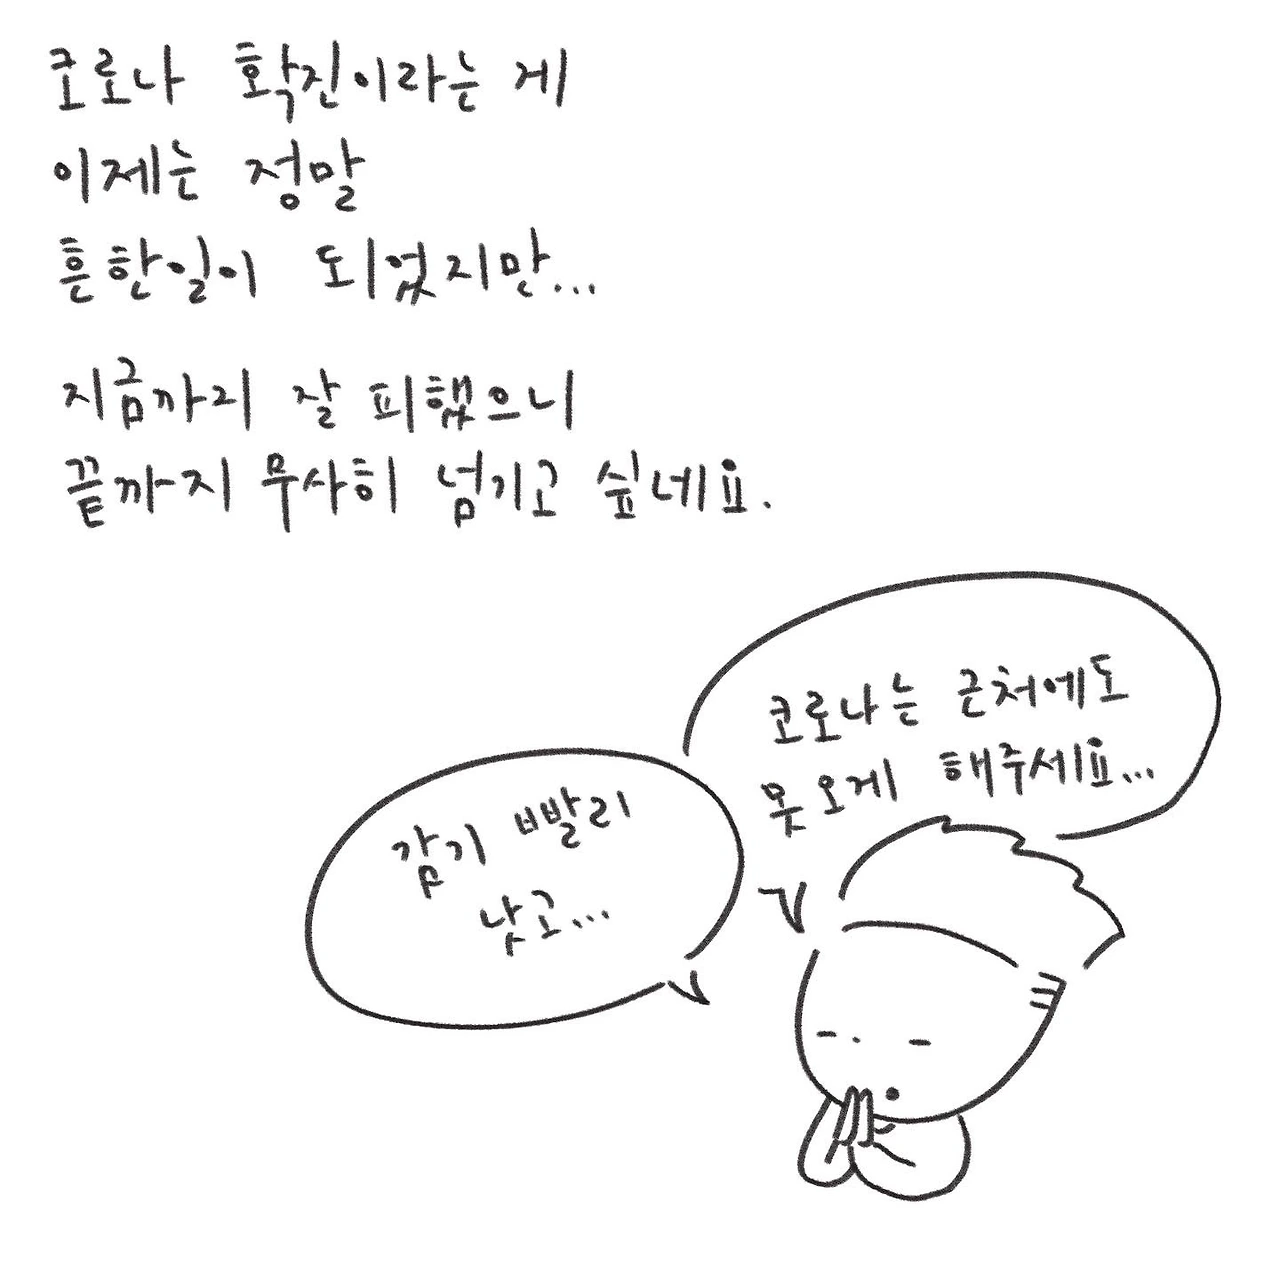 코로나 확진이라는 게
이제는 정말
흔한일이 되었지만...
지금까리 잘 피했으니
끝까지 무사히 넘기고 싶네요.
코로나는 근처에도
못 오게 해주세요...
감기 빨리
낫고...